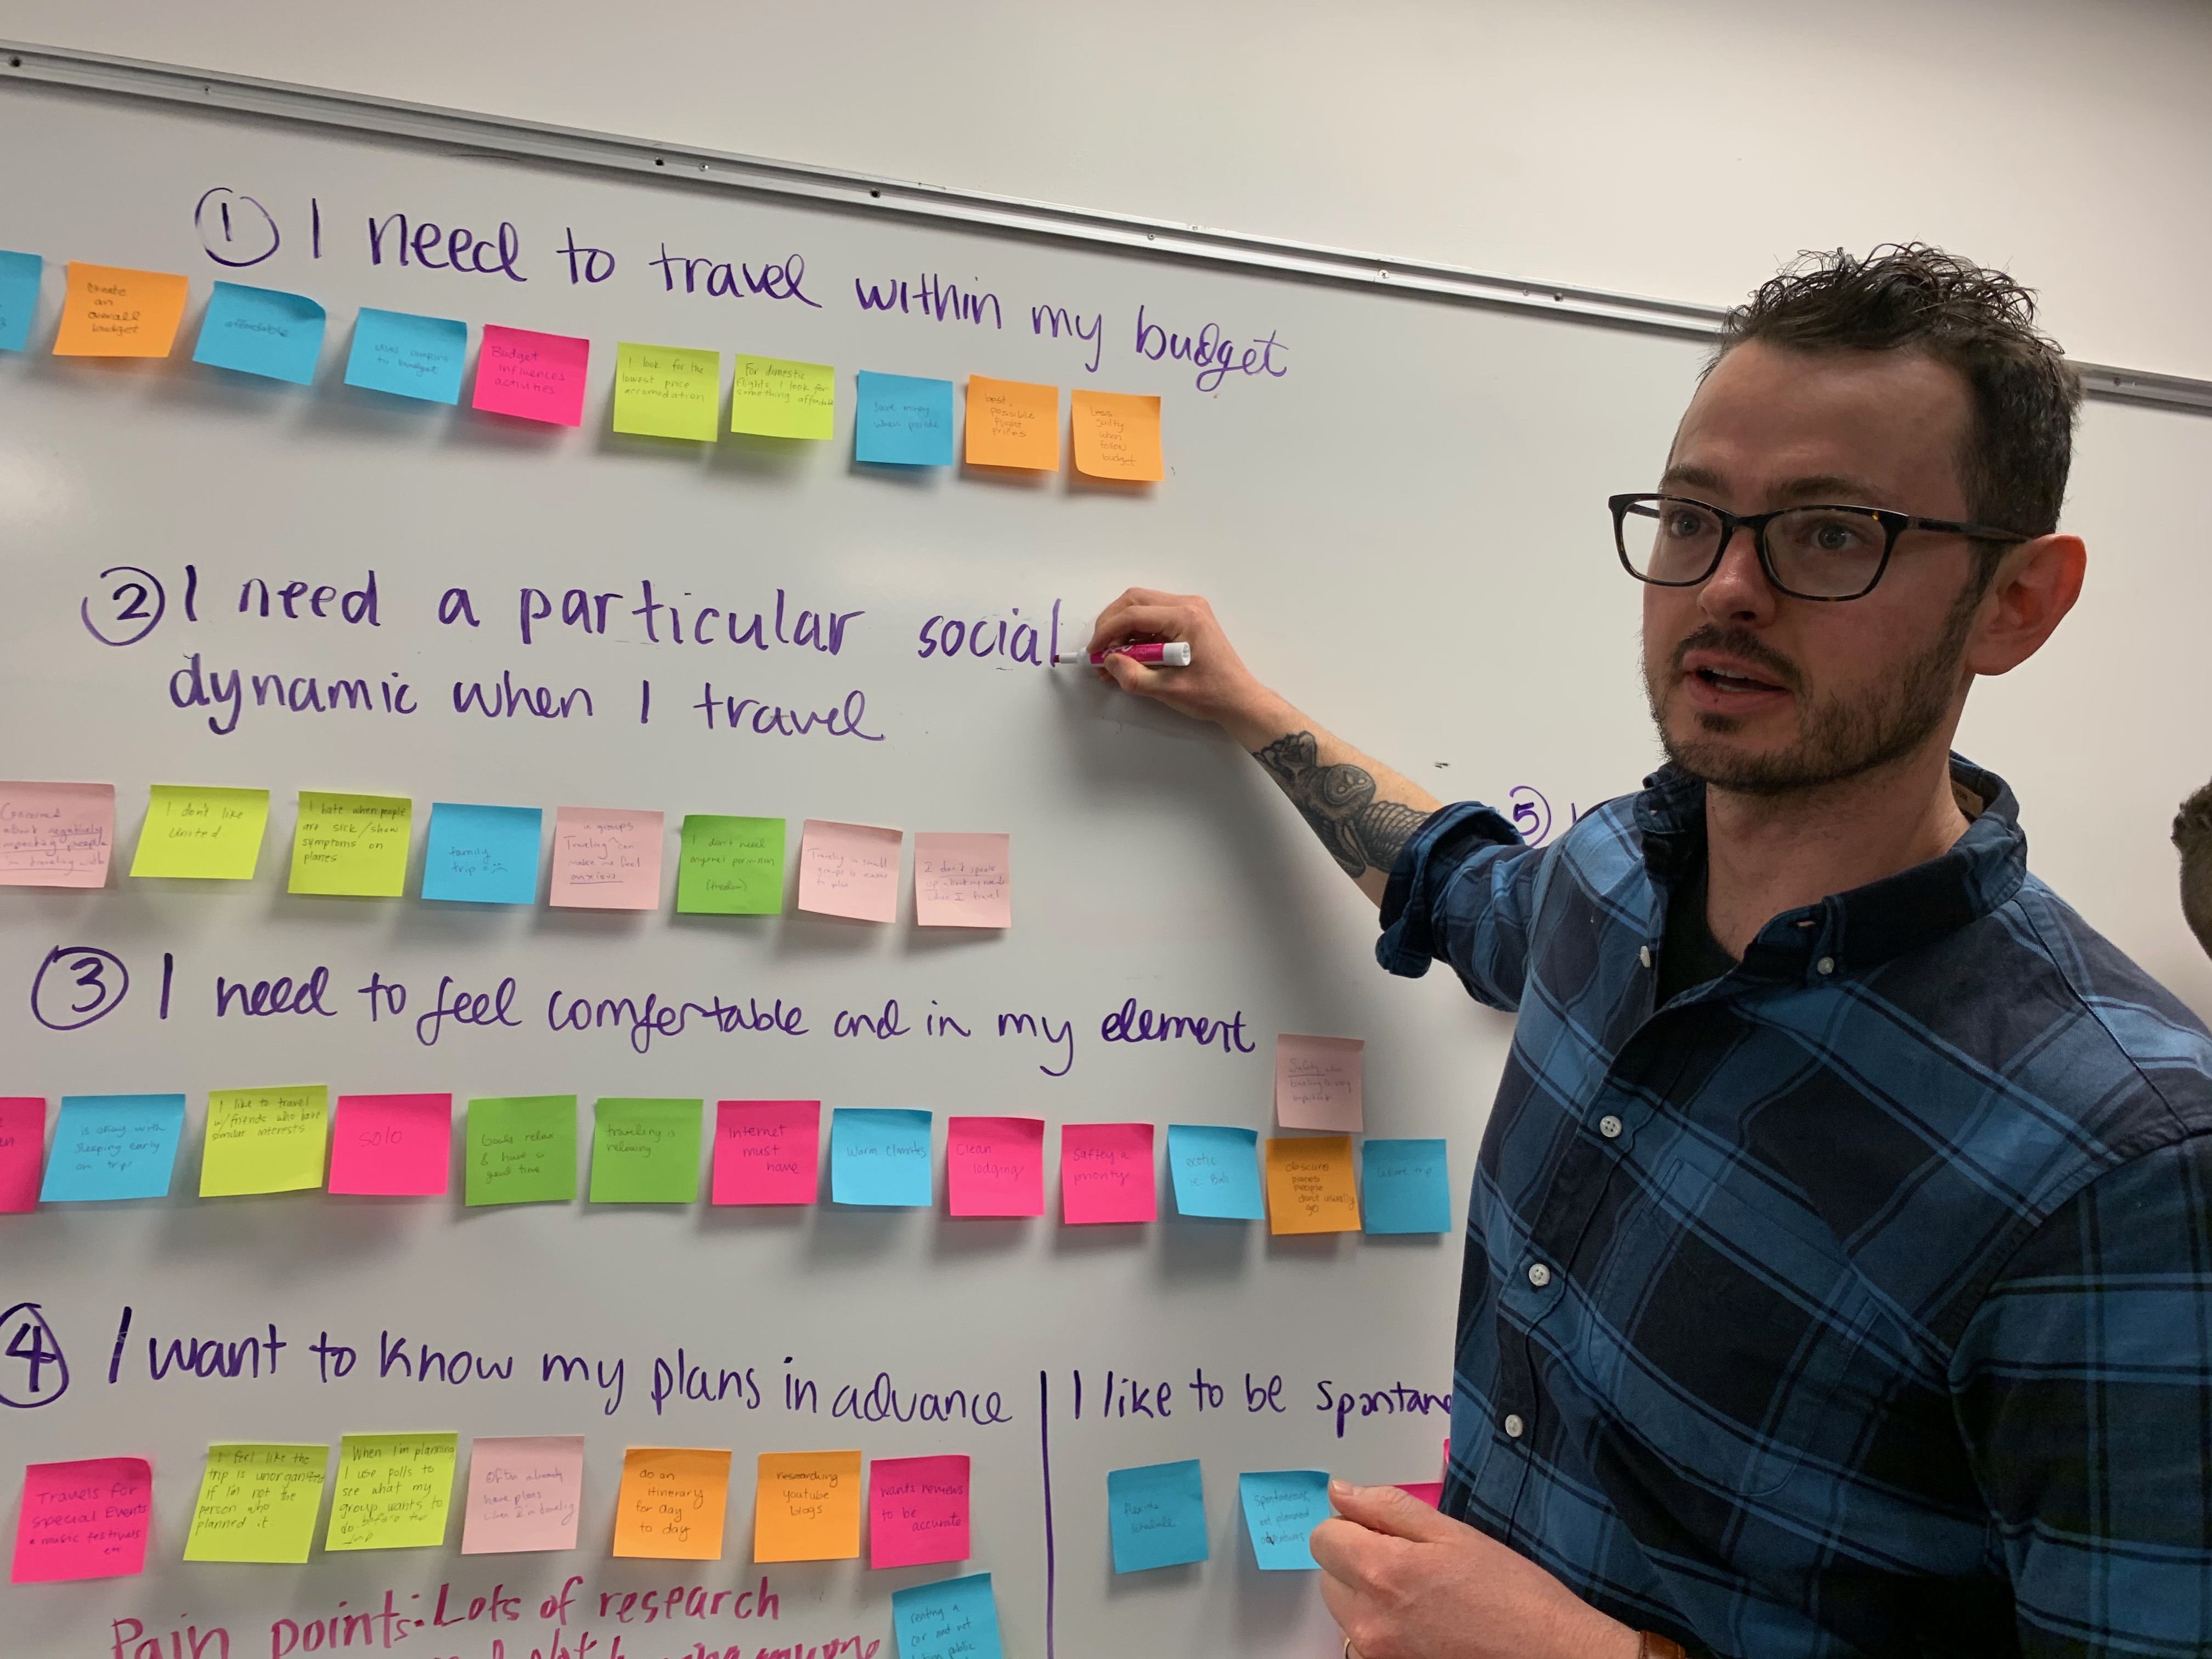 ① I need to travel within my budget
create
an
overall
budget
affordable
budget
Budget
influences
activities
I look for the
lowest price
accomodation
For domestic
flights I look for
something affordable
Save money
when possible
best
possible
flight
prices
less
guilty
when
follow
budget
② I need a particular social
dynamic when I travel
Concerned
about negatively
impacting people
I'm traveling with
I don't like
United.
I hate when people
are sick/show
symptoms on
planes
family
trip
in groups
Traveling can
make me feel
anxious
I don't need
anyone's permission
(freedom)
Traveling in small
groups is easier
to plan
I don't speak
up about my needs
when I travel
③ I need to feel comfortable and in my element
Safety when
traveling is very
important
is okay with
sleeping early
on trips
I like to travel
w/friends who have
similar interests.
solo
Goals relax
& have a
good time
traveling is
relaxing
Internet
must
have
Warm climates
Clean
lodging
Saftey a
priority
exotic
ie. Bali
obscure
places
people
don't usually
go
trip
④ I want to know my plans in advance | I like to be spontan
Travels for
Special Events
• music festivals
etc.
I feel like the
trip is unorganized
if I'm not the
person who
planned it.
When I'm planning
I use polls to
see what my
group wants to
do before the
trip
Often already
have plans
when traveling
do an
itinerary
for day
to day
researching
youtube
blogs
wants reviews
to be
accurate
flexible
schedule
spontaneous,
not planned
adventures
Pain points: Lots of research
renting a
car and not
public
⑤ I